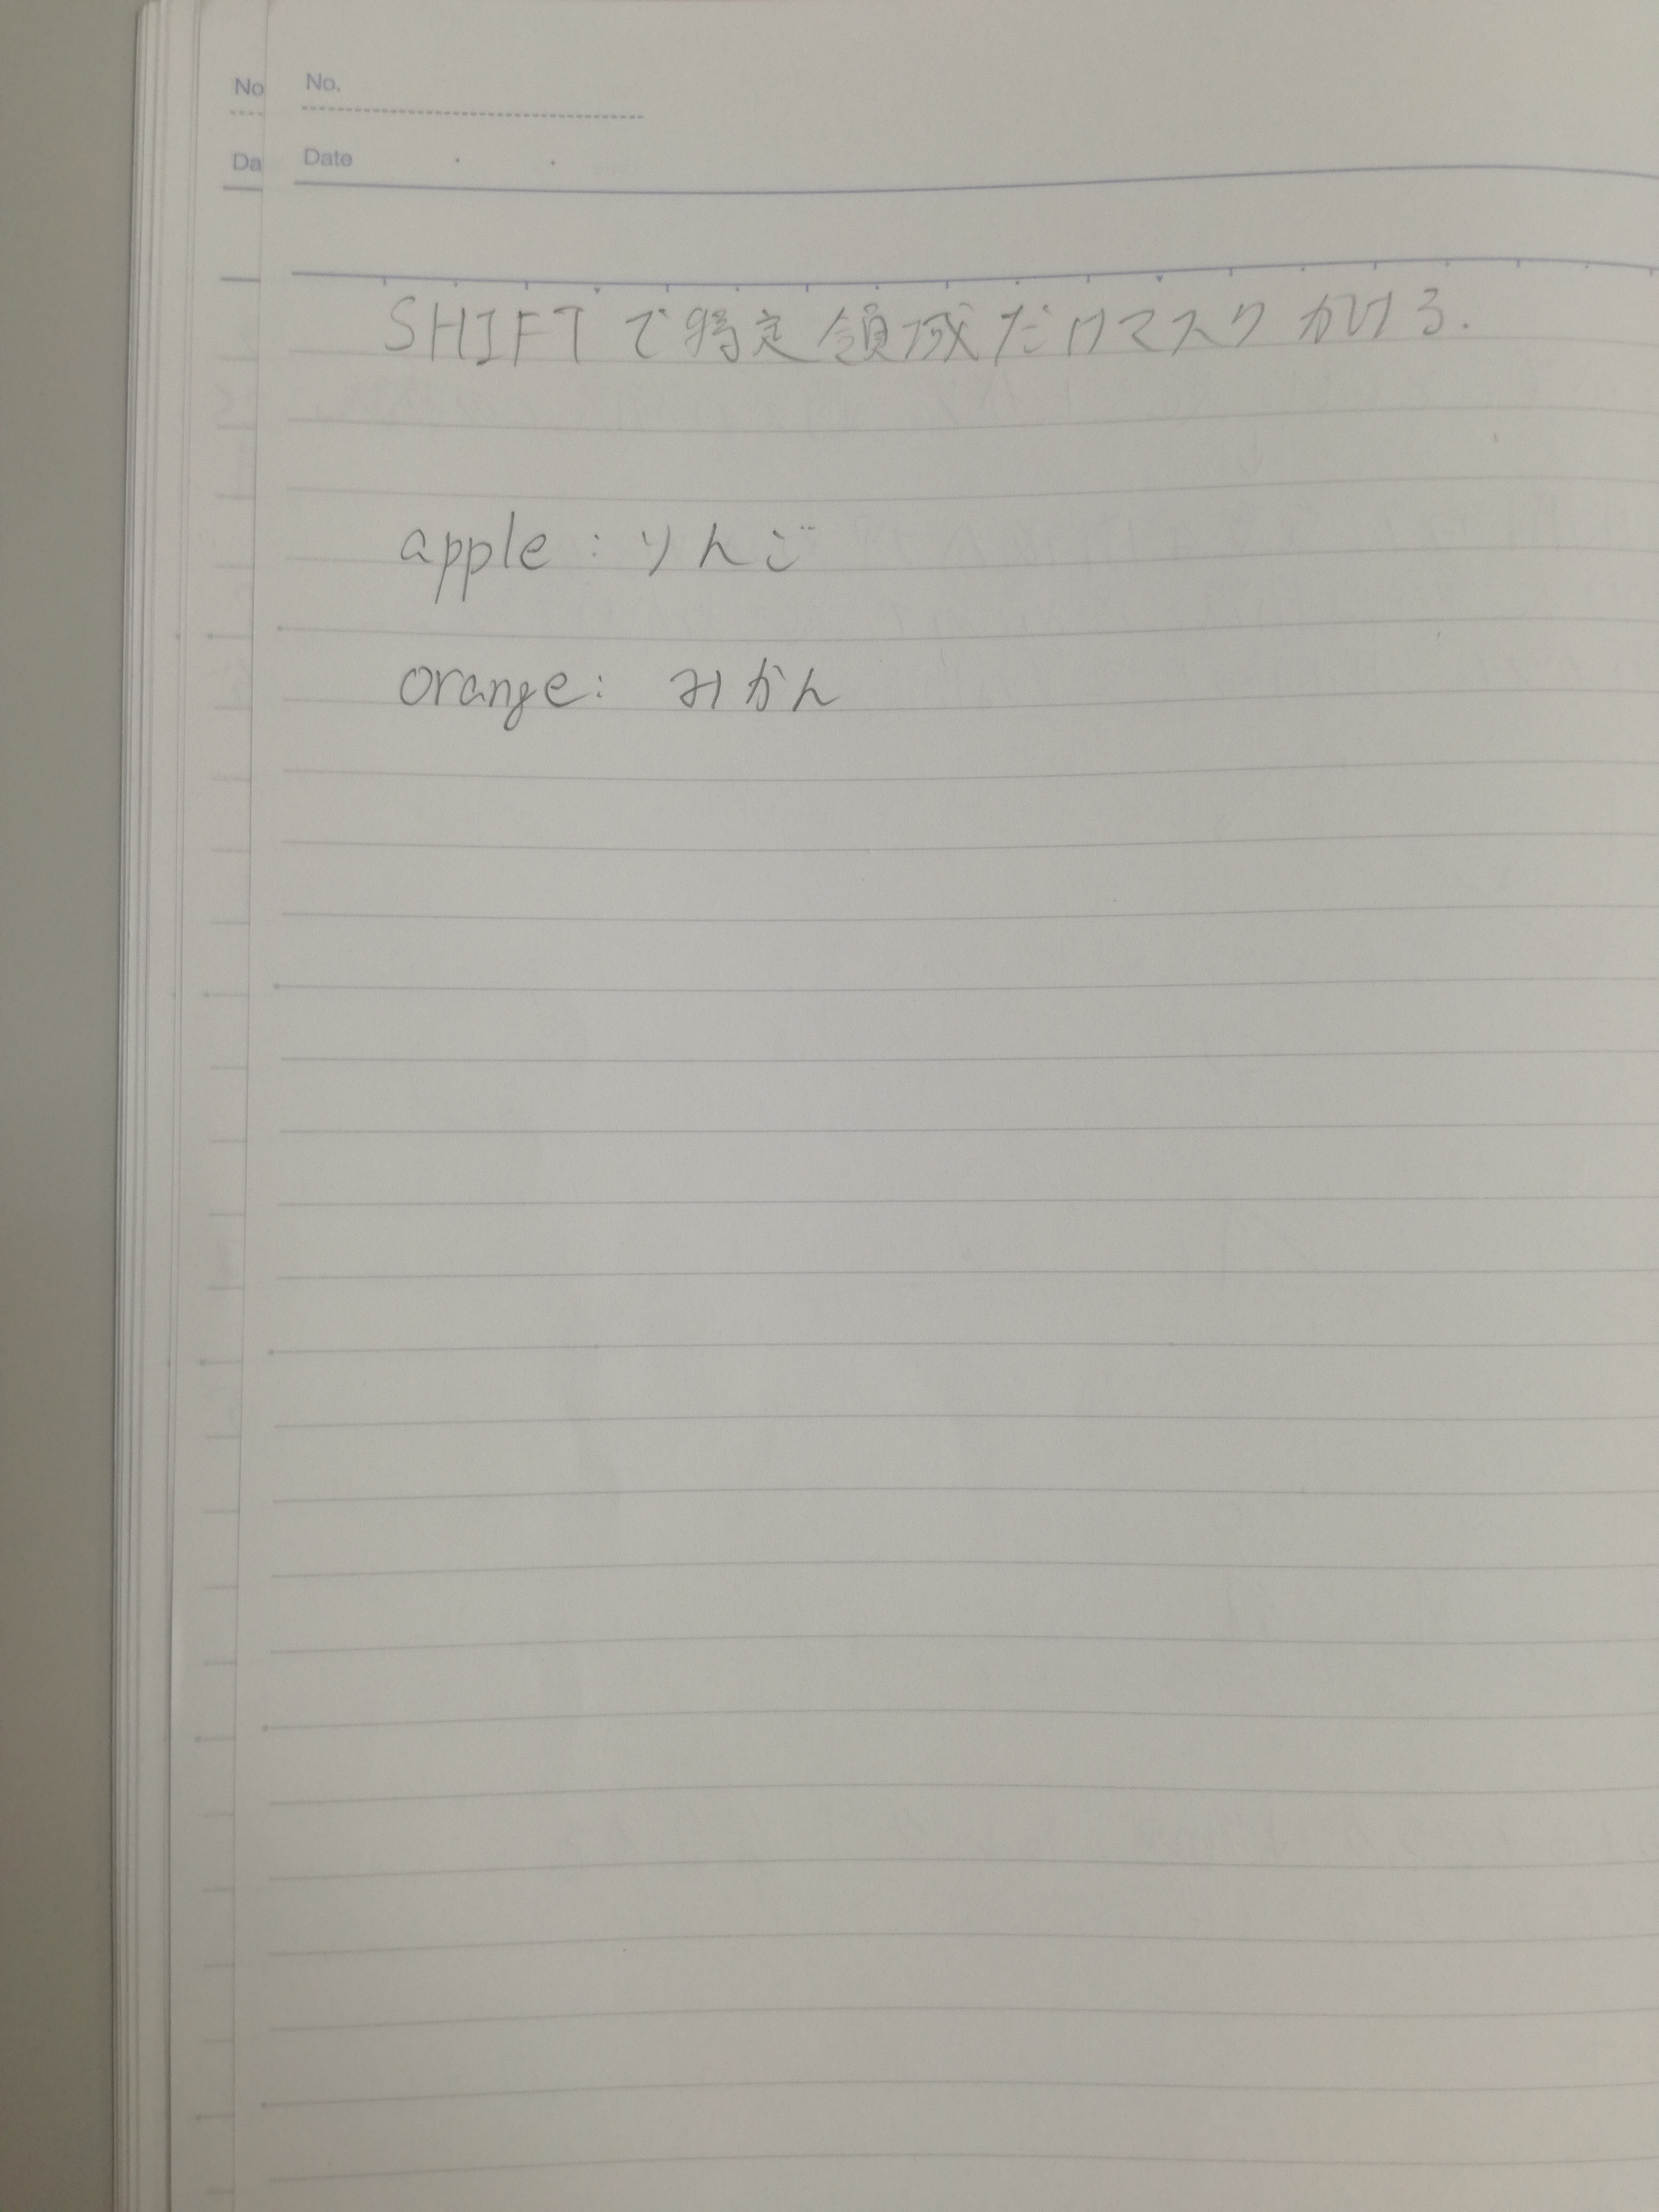 No No.
Da Date
SHIFTで特定領域だけマスクかける.
apple : りんご
orange: みかん